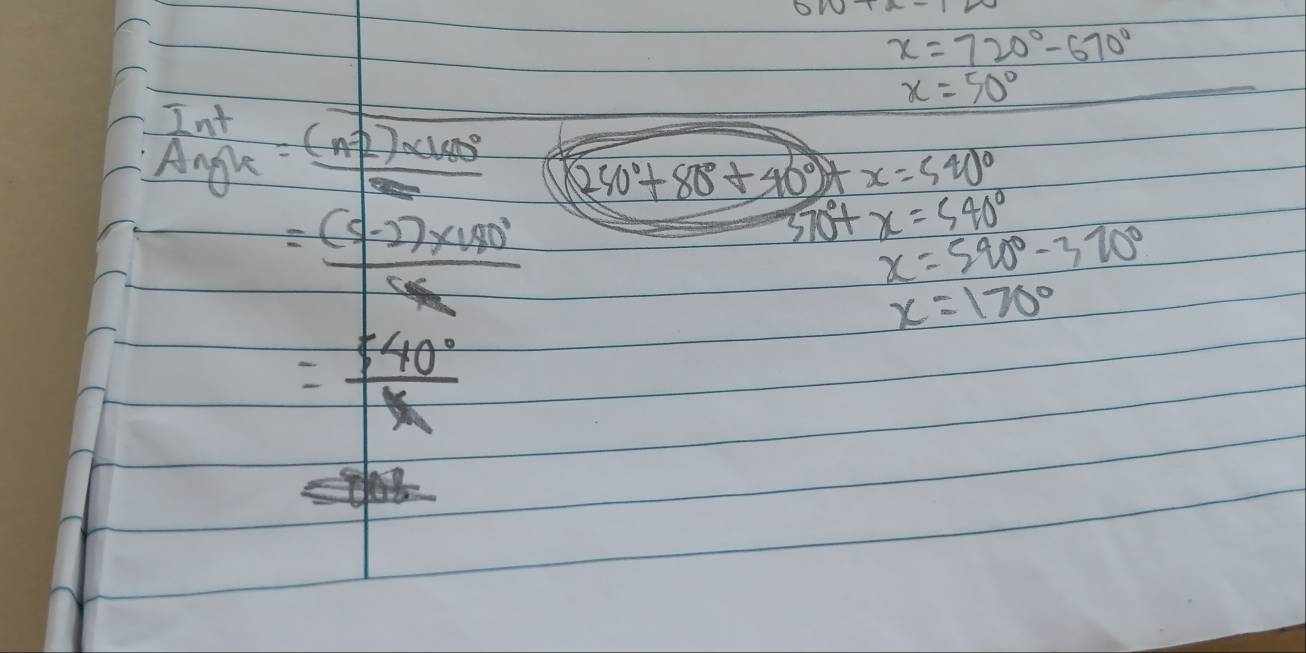 x = 720° - 670°
x = 50°
Int Angle = (n-2) x 180°
= (5-2) x 180°
= 540°
(250° + 80° + 40°) + x = 540°
370° + x = 540°
x = 540° - 370°
x = 170°